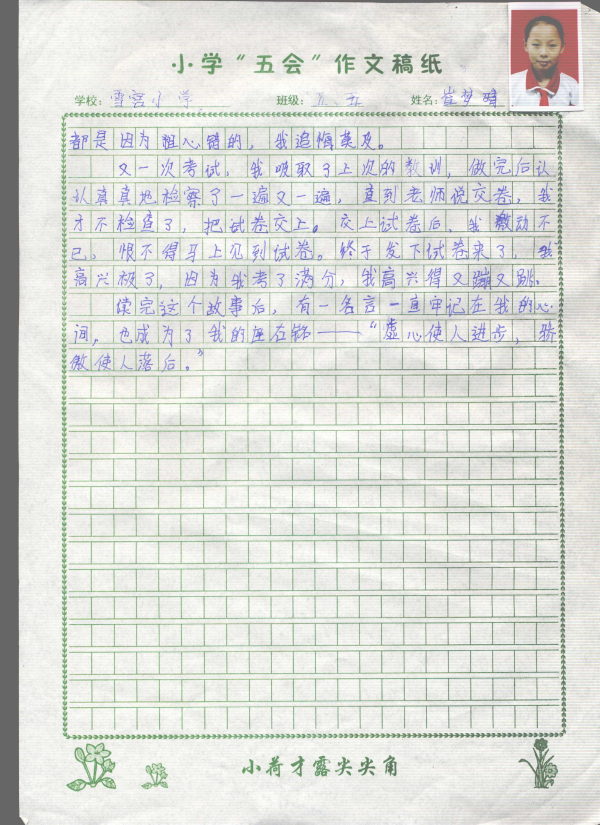 小学“五会”作文稿纸
学校：雪宫小学 班级：五、五 姓名：崔梦晴
都是因为粗心错的，我追悔莫及。
又一次考试，我吸取了上次的教训，做完后认
认真真地检察了一遍又一遍，直到老师说交卷，我
才不检查了，把试卷交上。交上试卷后，我激动不
已，恨不得马上见到试卷。终于发下试卷来了，我
高兴极了，因为我考了满分，我高兴得又蹦又跳。
读完这个故事后，有一名言一直牢记在我的心
间，也成为了我的座右铭——“虚心使人进步，骄
傲使人落后。”
小荷才露尖尖角